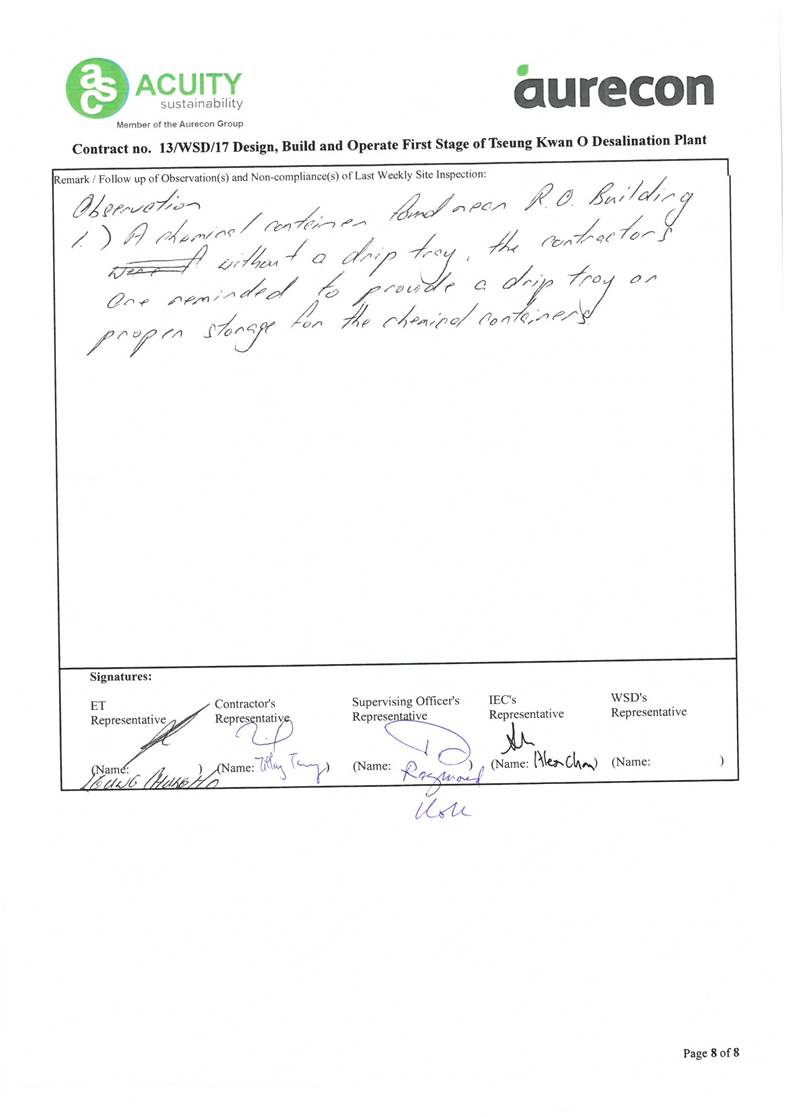 asc ACUITY
sustainability
Member of the Aurecon Group
aurecon
Contract no. 13/WSD/17 Design, Build and Operate First Stage of Tseung Kwan O Desalination Plant
Remark / Follow up of Observation(s) and Non-compliance(s) of Last Weekly Site Inspection:
Observation
1.) A chemical container found near R.O. Building
without a drip tray, the contractors
are reminded to provide a drip tray or
proper storage for the chemical containers
Signatures:
ET Representative
Contractor's Representative
Supervising Officer's Representative
IEC's Representative
WSD's Representative
(Name: )
(Name: )
(Name: Raymond )
(Name: Alex Chan)
(Name: )
Page 8 of 8